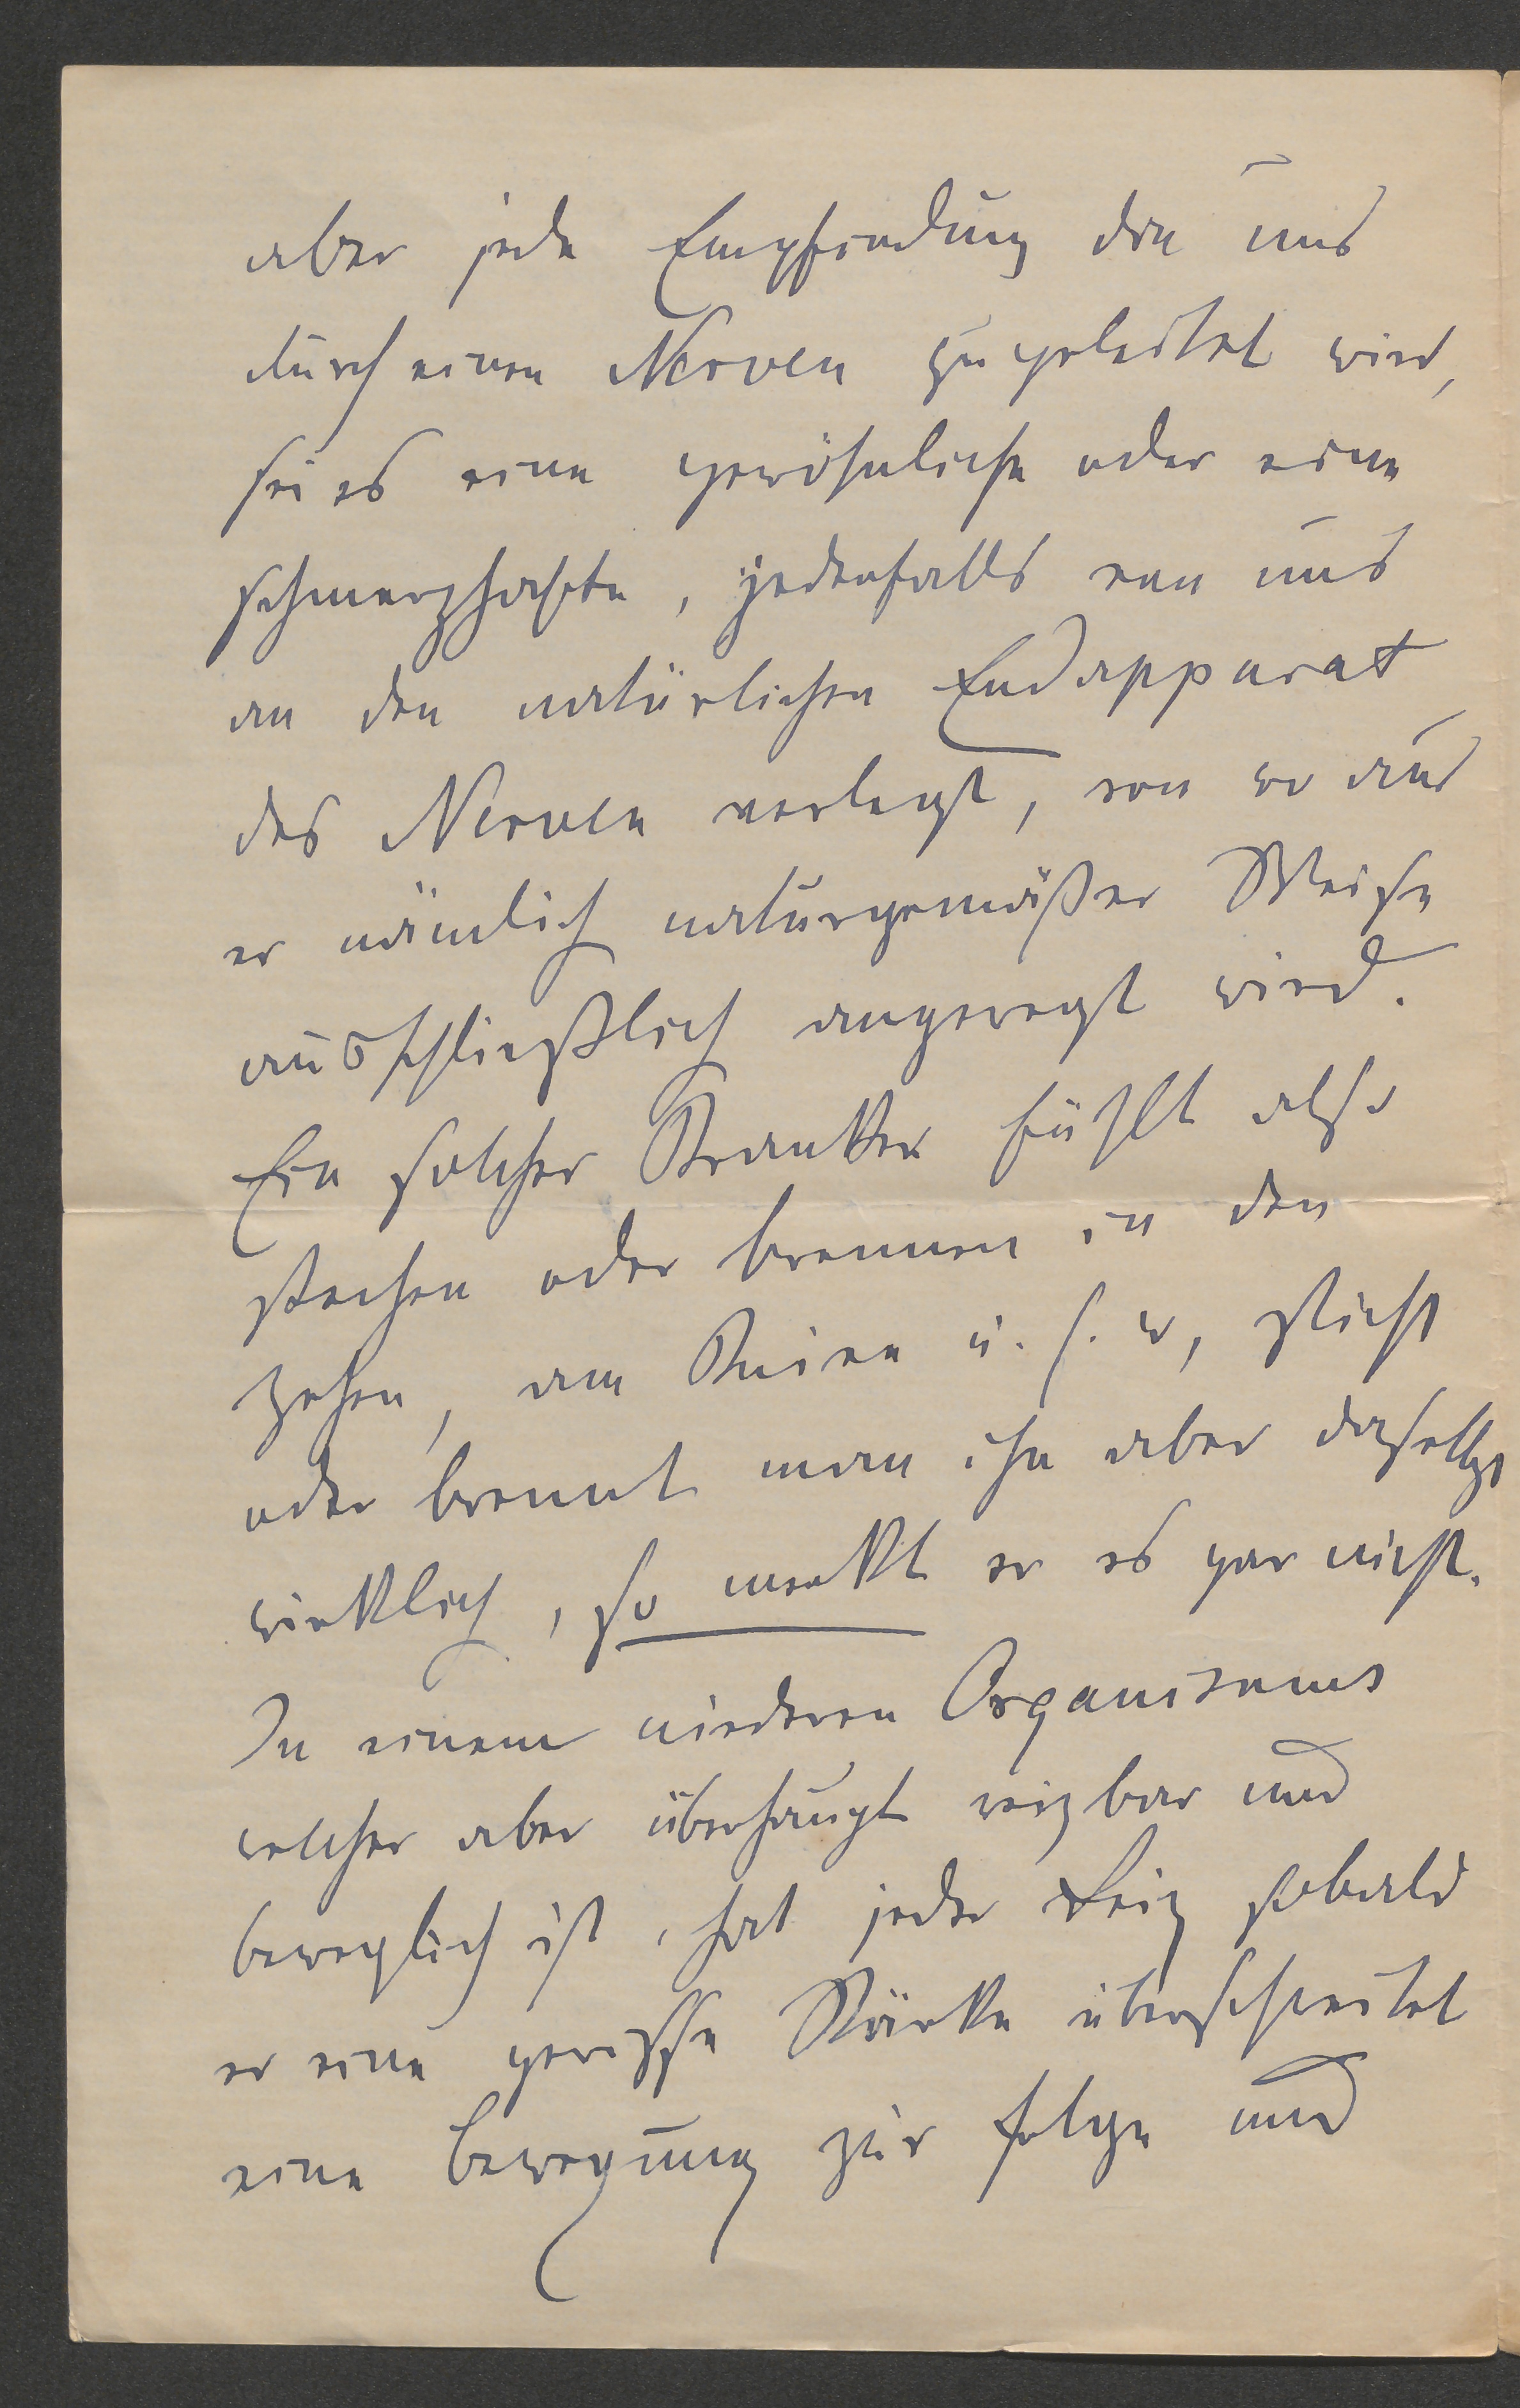 aber jede Empfindung die uns
durch einen Nerven zugeleitet wird,
sei es eine gewöhnliche oder eine
schmerzhafte, jedenfalls von uns
an den natürlichen Endapparat
des Nerven verlegt, von wo aus
er nämlich naturgemäßer Weise
ausschließlich angeregt wird.
Ein solcher Kranker fühlt also
stechen oder brennen in den
Zehen, am Knien u. s. w, sticht
oder brennt man ihn aber daselbst
wirklich, so merkt er es gar nicht.
In einem niederen Organismus
welcher aber überhaupt reizbar und
beweglich ist, hat jeder Reiz sobald
er eine gewisse Stärke überschreitet
eine Bewegung zur Folge und